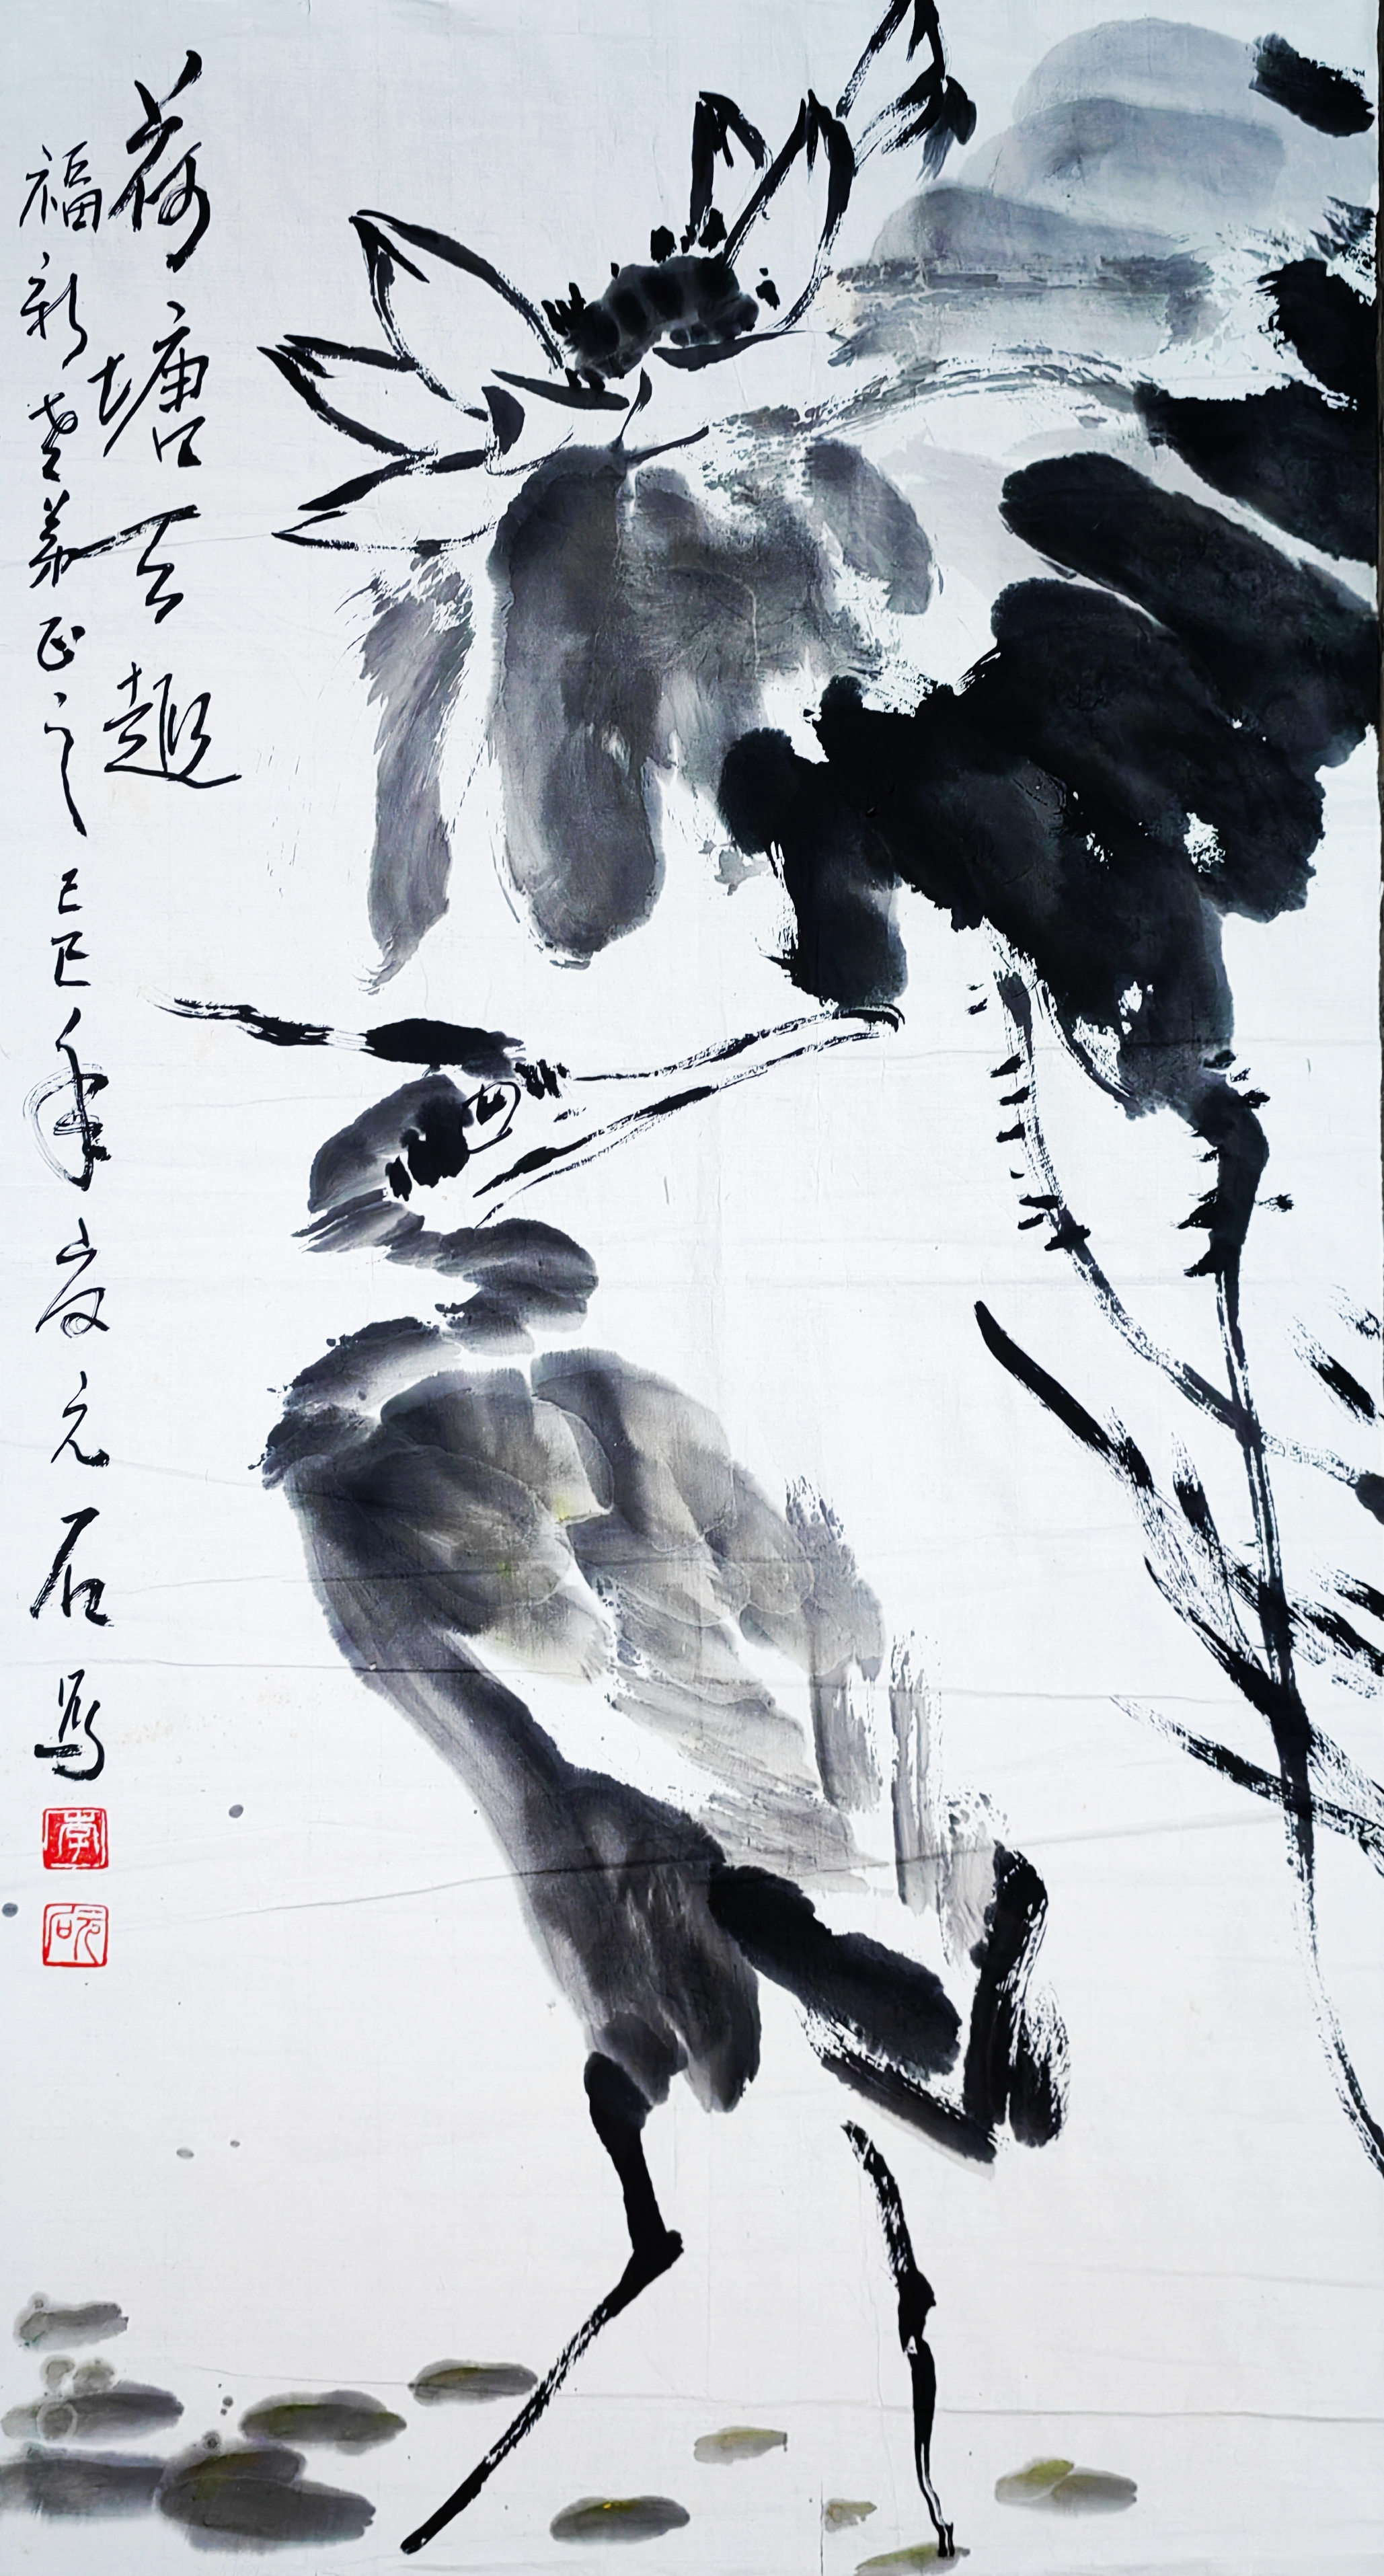 荷塘趣
福新老弟正之己巳年夏元石写